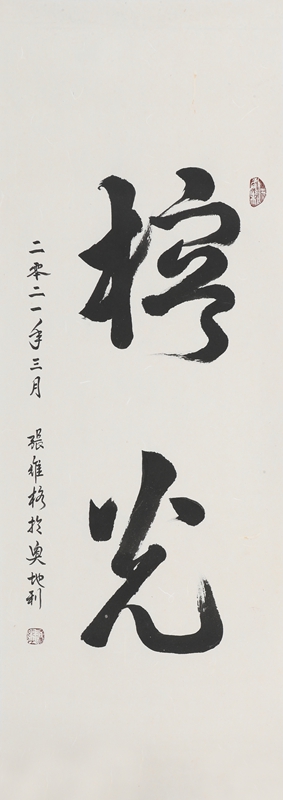 光
二零二一年三月 張維格於奧地利